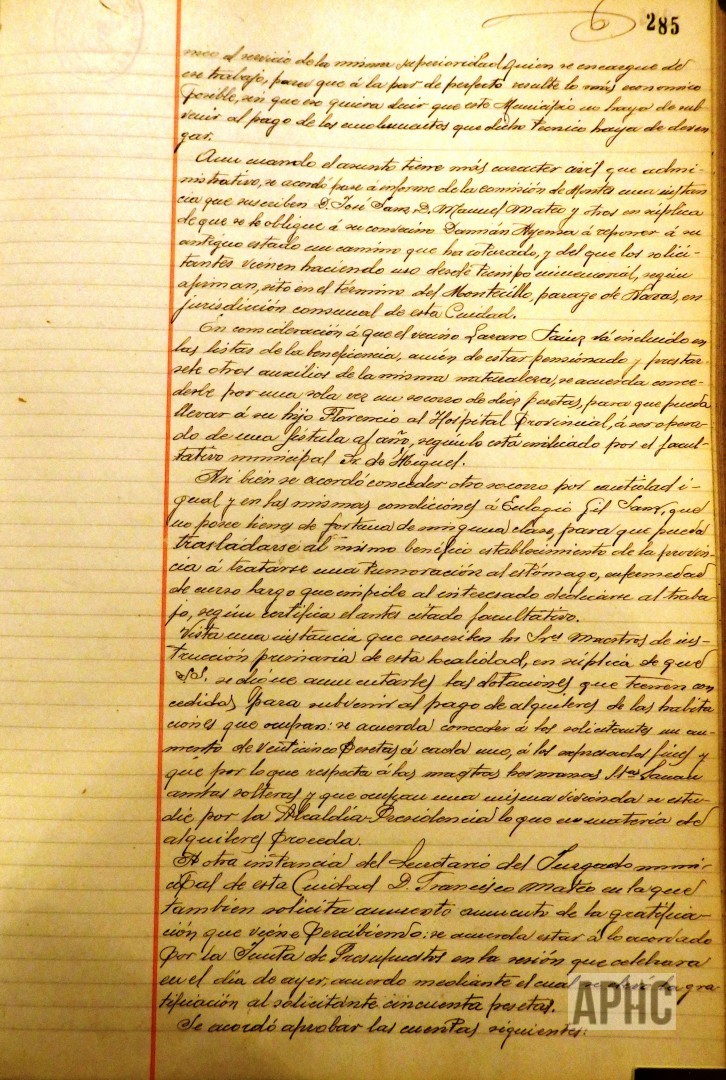 285
nico al servicio de la misma superioridad quien se encargue de
ese trabajo, para que á la par de perfecto resulte lo más economico
posible, sin que ese quiera decir que este Municipio no haya de sub-
venir al pago de los emolumentos que dicho tecnico haya de deven-
gar.
Aun cuando el asunto tiene más caracter civil que admi-
nistrativo, se acordó pase á informe de la comisión de Montes una instan
cia que suscriben D. José Sanz, D. Manuel Mateo y otros en súplica
de que se le obligue á su convecino Damián Ayensa á reponer á su
antiguo estado un camino que ha roturado, y del que los solici-
tantes vienen haciendo uso desde tiempo inmemorial, según
afirman, sito en el término del Montecillo, parage de Navas, en
jurisdicción comunal de esta Ciudad.
En consideración á que el vecino Lazaro Sainz vá incluido en
las listas de la beneficencia, amén de estar pensionado y prestar-
sele otros auxilios de la misma naturaleza, se acuerda conce-
derle por una sola vez un socorro de diez pesetas, para que pueda
llevar á su hijo Florencio al Hospital Provincial, á ser opera-
do de una fístula al año, según lo está indicado por el facul-
tativo municipal Sr. de Miguel.
Así bien se acordó conceder otro socorro por cantidad i-
gual y en las mismas condiciones á Eulogio Gil Sanz, que
no posee bienes de fortuna de ninguna clase, para que pueda
trasladarse al mismo benéfico establecimiento de la provin-
cia á tratarse una tumoración al estómago, enfermedad
de curso largo que impide al interesado dedicarse al traba-
jo, según certifica el antes citado facultativo.
Vista una instancia que suscriben los Sres Maestros de ins-
trucción primaria de esta localidad, en súplica de que
se digne aumentarles las dotaciones que tienen con
cedidas para subvenir al pago de alquileres de las habita
ciones que ocupan: se acuerda conceder á los solicitantes un au-
mento de veinticinco pesetas á cada uno, á los expresados fines y
que por lo que respecta á las maestras hermanas Stas
ambas solteras y que ocupan una misma vivienda se estu-
die por la Alcaldía-Presidencia lo que en materia de
alquileres proceda.
A otra instancia del Secretario del Juzgado muni-
cipal de esta Ciudad D. Francisco Mateo en la que
tambien solicita aumento aumento de la gratifica-
ción que viene percibiendo: se acuerda estar á lo acordado
por la Junta de Presupuestos en la sesión que celebrara
en el día de ayer, acuerdo mediante el cual se elevó la gra
tificación al solicitante cincuenta pesetas.
Se acordó aprobar las cuentas siguientes:
APHC